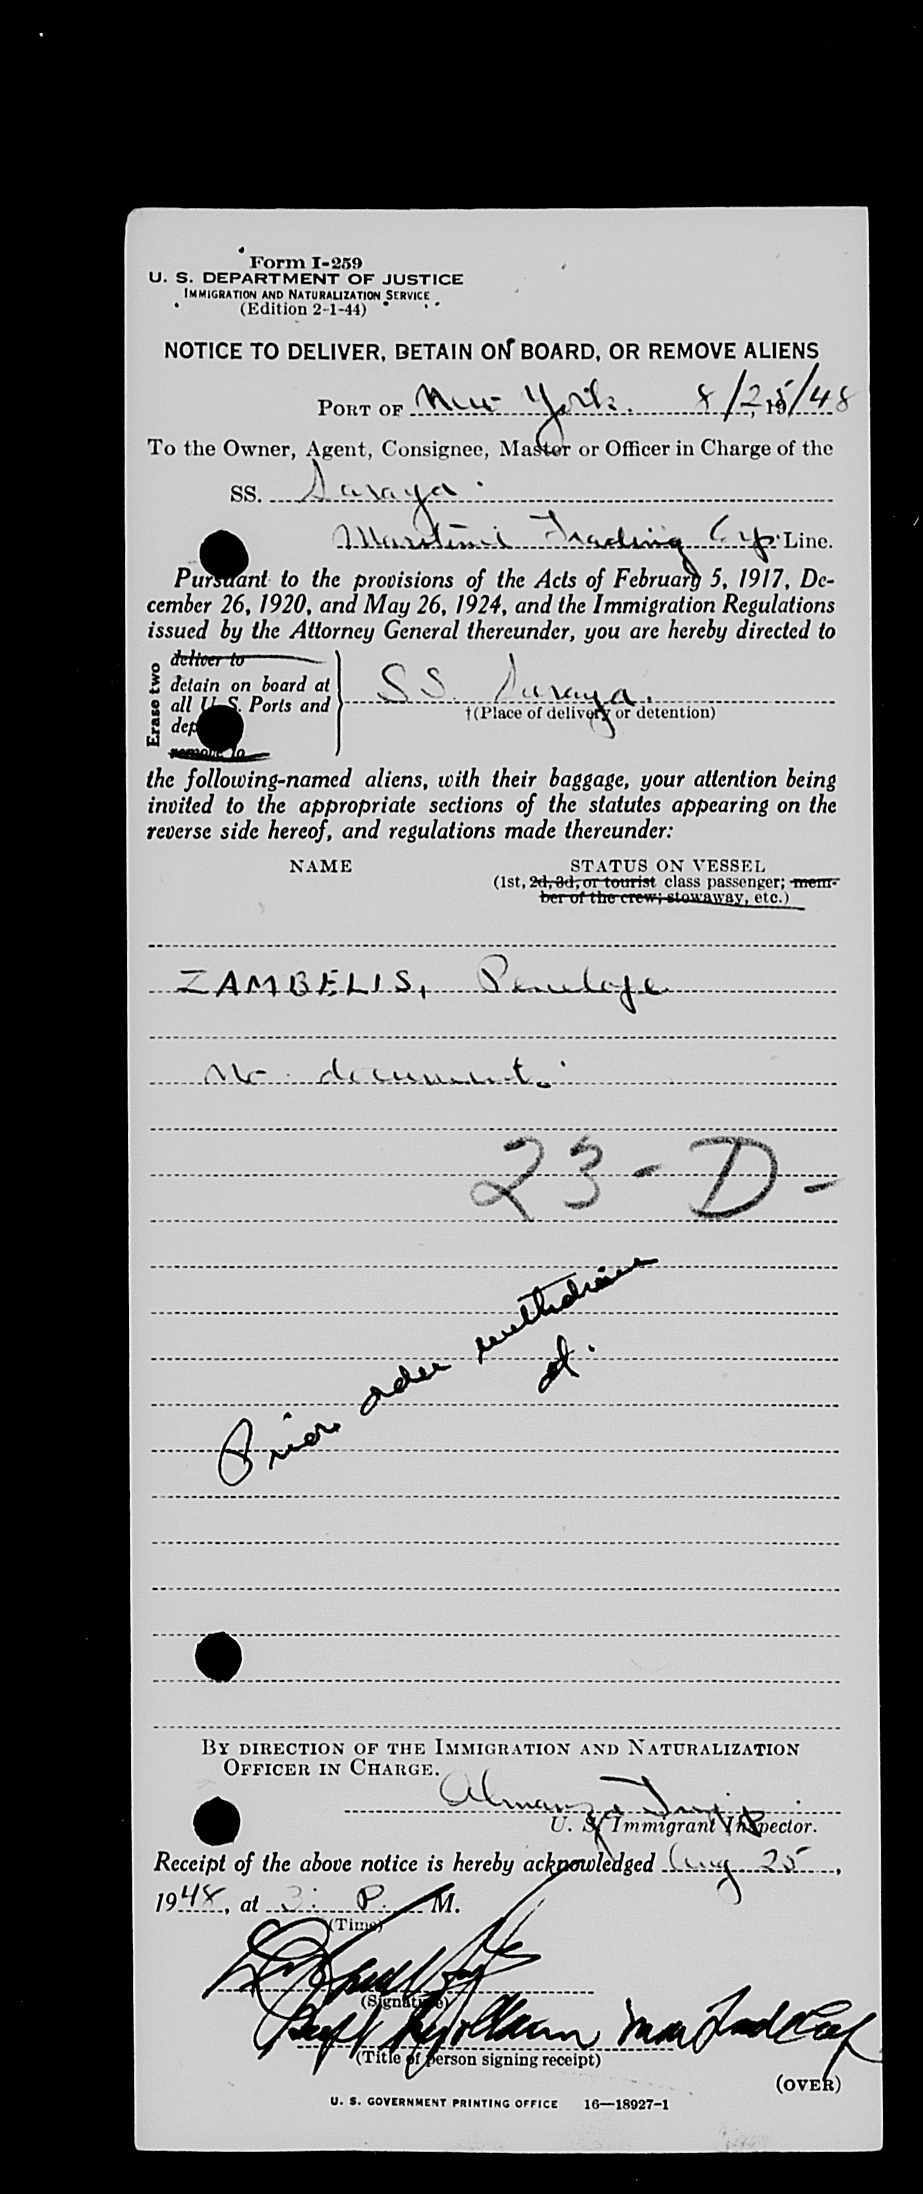 Form I-259
U. S. DEPARTMENT OF JUSTICE
IMMIGRATION AND NATURALIZATION SERVICE
(Edition 2-1-44)
NOTICE TO DELIVER, DETAIN ON BOARD, OR REMOVE ALIENS
PORT OF New York. 8/25/48, 19
To the Owner, Agent, Consignee, Master or Officer in Charge of the
SS. Saraya
Maritime Trading Cp. Line.
Pursuant to the provisions of the Acts of February 5, 1917, De-
cember 26, 1920, and May 26, 1924, and the Immigration Regulations
issued by the Attorney General thereunder, you are hereby directed to
Erase two
deliver to
detain on board at
all U. S. Ports and
dep
remove to
SS. Saraya.
†(Place of delivery or detention)
the following-named aliens, with their baggage, your attention being
invited to the appropriate sections of the statutes appearing on the
reverse side hereof, and regulations made thereunder:
NAME STATUS ON VESSEL
(1st, 2d, 3d, or tourist class passenger; mem-
ber of the crew; stowaway, etc.)
ZAMBELIS, Penelope
No documents
23-D-
Prior order withdrawn
BY DIRECTION OF THE IMMIGRATION AND NATURALIZATION
OFFICER IN CHARGE.
U. S. Immigrant Inspector.
Receipt of the above notice is hereby acknowledged Aug 25,
1948, at 3: P. M.
(Time)
(Signature)
(Title of person signing receipt)
(OVER)
U. S. GOVERNMENT PRINTING OFFICE 16—18927-1